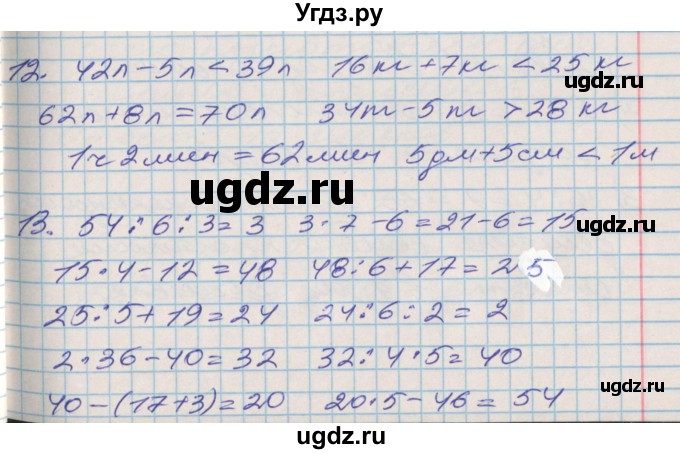 Угдз.ру
12. 42л - 5л < 39л   16кг + 7кг < 25кг
62л + 8л = 70л   34т - 5т > 28кг
1ч 2мин = 62мин   5дм + 5см < 1м
ugdz.ru
ugdz.ru
13. 54 : 6 : 3 = 3   3 · 7 - 6 = 21 - 6 = 15
15 · 4 - 12 = 48   48 : 6 + 17 = 25
25 : 5 + 19 = 24   24 : 6 : 2 = 2
2 · 36 - 40 = 32   32 : 4 · 5 = 40
40 - (17 + 3) = 20   20 · 5 - 46 = 54
ugdz.ru
ugdz.ru